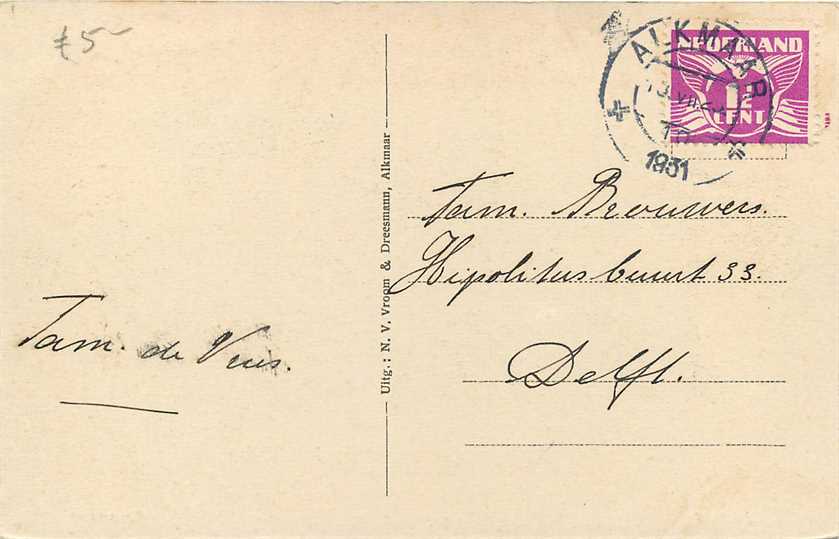 £5-
ALKMAAR
1931
NEDERLAND
1½
CENT
Fam. Brouwers.
Hipolitusbuurt 33.
Delft.
Fam. de Vries.
Uitg.: N. V. Vroom & Dreesmann, Alkmaar